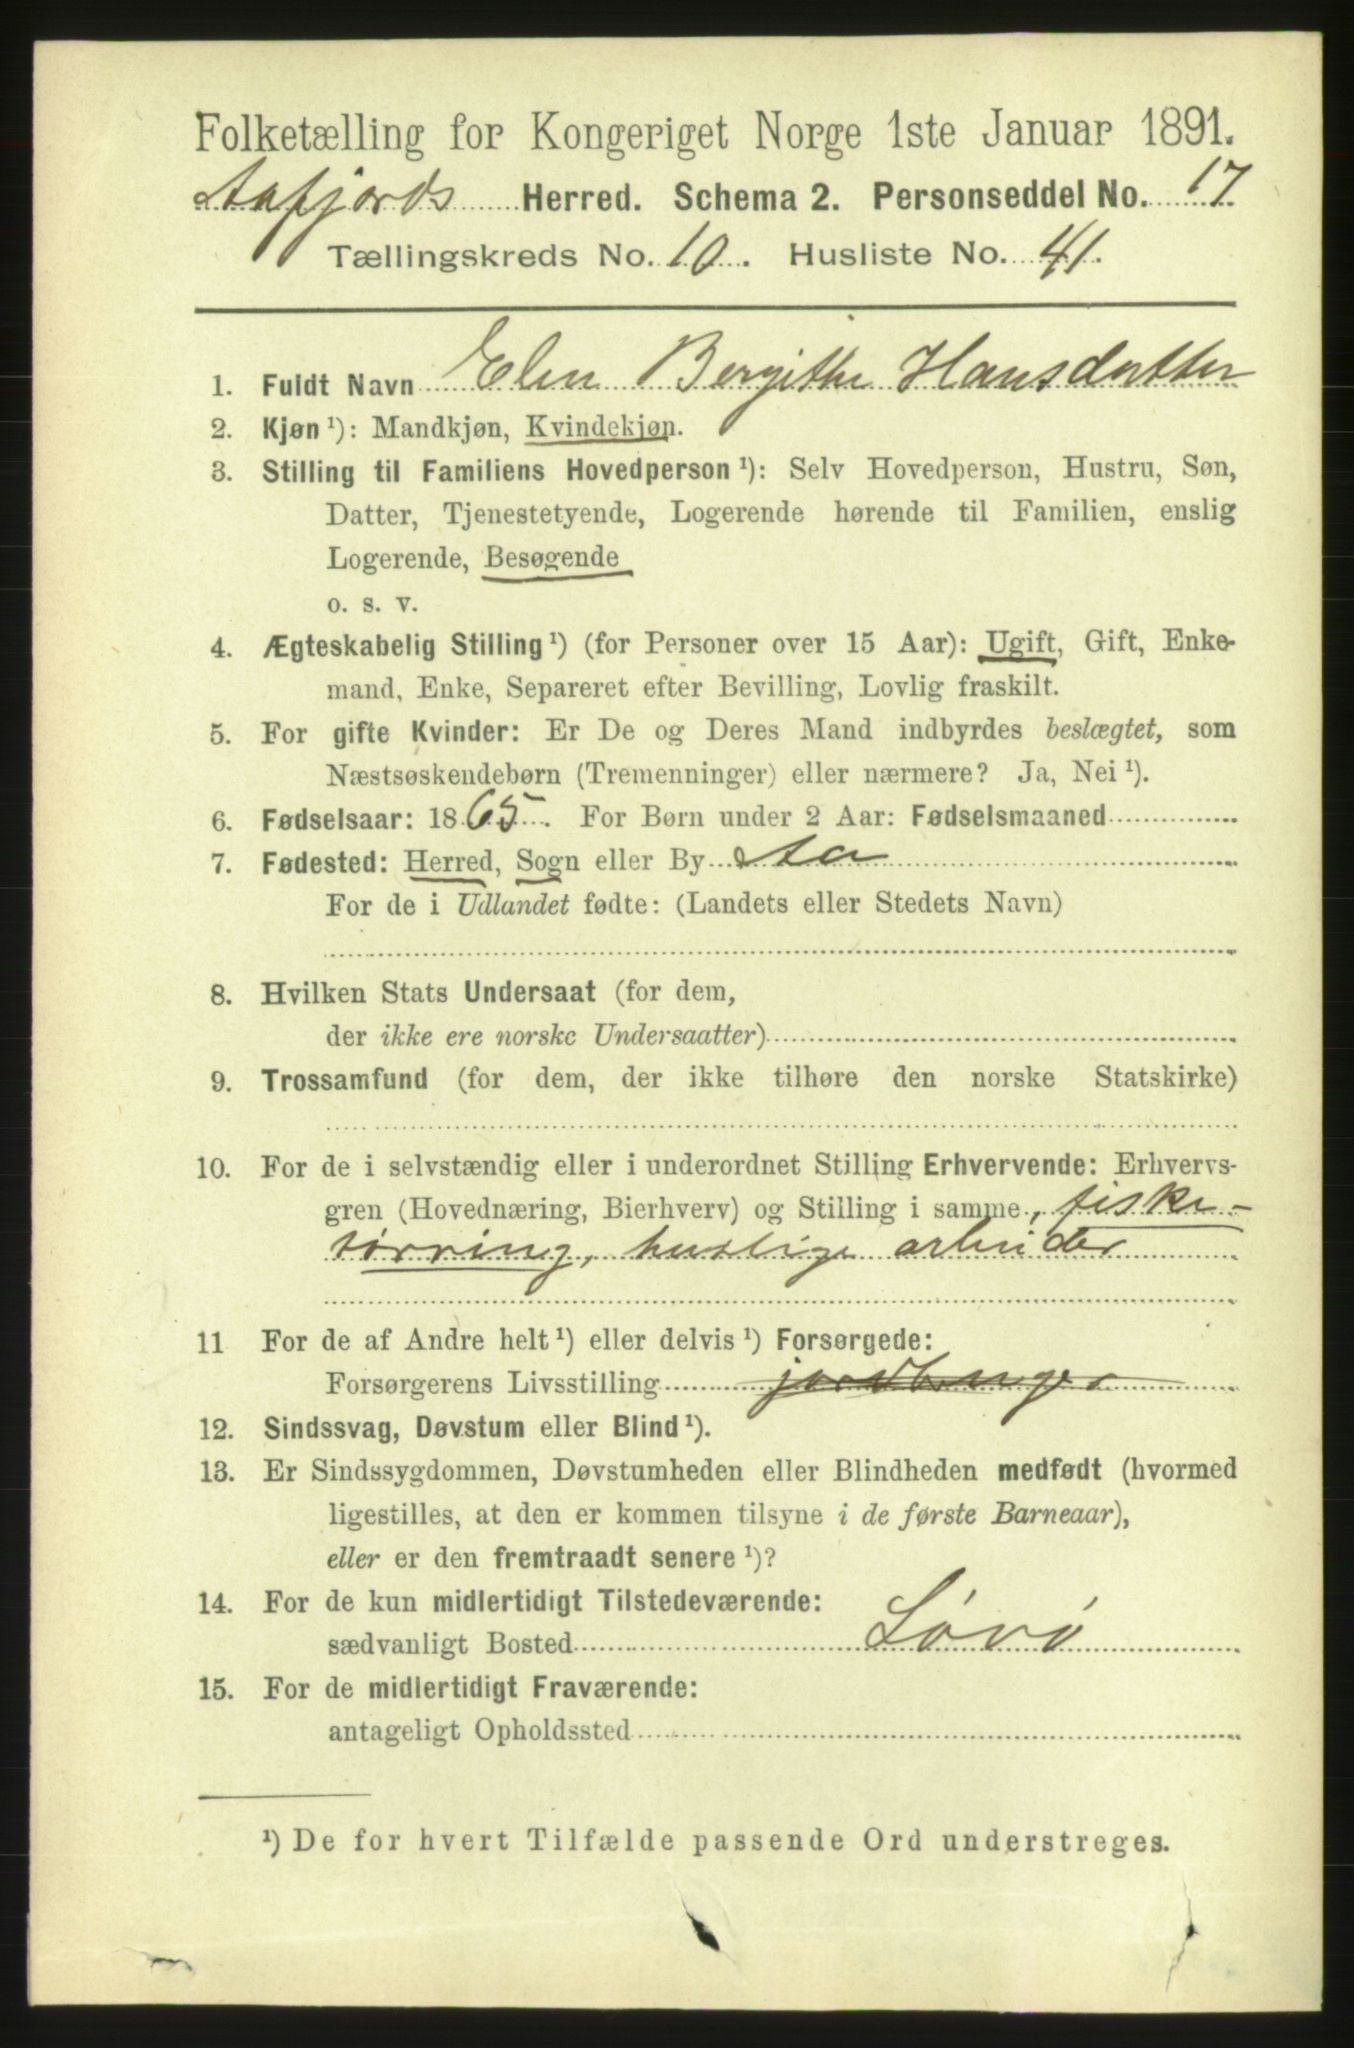 Folketælling for Kongeriget Norge 1ste Januar 1891.
Aafjords Herred. Schema 2. Personseddel No. 17.
Tællingskreds No. 10. Husliste No. 41.
1. Fuldt Navn Elen Bergitthe Hansdatter
2. Kjøn ¹): Mandkjøn, Kvindekjøn.
3. Stilling til Familiens Hovedperson ¹): Selv Hovedperson, Hustru, Søn,
Datter, Tjenestetyende, Logerende hørende til Familien, enslig
Logerende, Besøgende
o. s. v.
4. Ægteskabelig Stilling ¹) (for Personer over 15 Aar): Ugift, Gift, Enke-
mand, Enke, Separeret efter Bevilling, Lovlig fraskilt.
5. For gifte Kvinder: Er De og Deres Mand indbyrdes beslægtet, som
Næstsøskendebørn (Tremenninger) eller nærmere? Ja, Nei ¹).
6. Fødselsaar: 1865. For Børn under 2 Aar: Fødselsmaaned
7. Fødested: Herred, Sogn eller By Aa
For de i Udlandet fødte: (Landets eller Stedets Navn)
8. Hvilken Stats Undersaat (for dem,
der ikke ere norske Undersaatter)
9. Trossamfund (for dem, der ikke tilhøre den norske Statskirke)
10. For de i selvstændig eller i underordnet Stilling Erhvervende: Erhvervs-
gren (Hovednæring, Bierhverv) og Stilling i samme, fiske-
tørring, huslige arbeider
11 For de af Andre helt ¹) eller delvis ¹) Forsørgede:
Forsørgerens Livsstilling jordbruger
12. Sindssvag, Døvstum eller Blind ¹).
13. Er Sindssygdommen, Døvstumheden eller Blindheden medfødt (hvormed
ligestilles, at den er kommen tilsyne i de første Barneaar),
eller er den fremtraadt senere ¹)?
14. For de kun midlertidigt Tilstedeværende:
sædvanligt Bosted Løvø
15. For de midlertidigt Fraværende:
antageligt Opholdssted
¹) De for hvert Tilfælde passende Ord understreges.